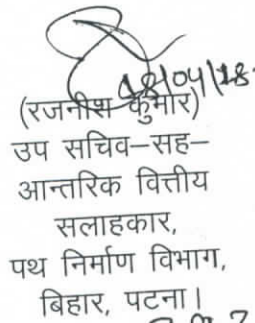 18/04/18
(रजनीश कुमार)
उप सचिव–सह–
आन्तरिक वित्तीय
सलाहकार,
पथ निर्माण विभाग,
बिहार, पटना।